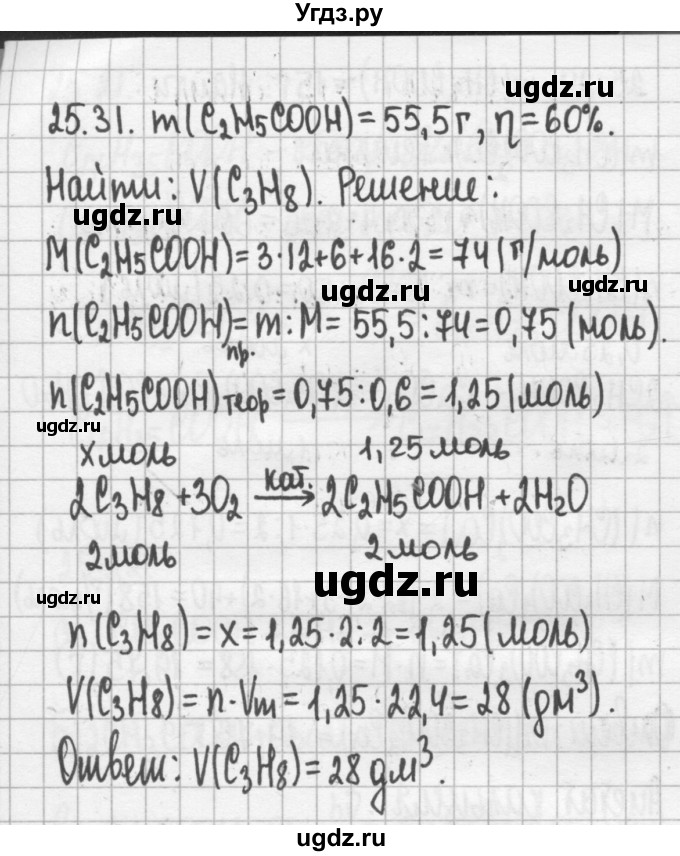 Угдз.ру
ugdz.ru
25.31. m(C₂H₅COOH)=55,5г, η=60%.
Найти: V(C₃H₈). Решение:
ugdz.ru
ugdz.ru
M(C₂H₅COOH)=3·12+6+16·2=74(г/моль)
ugdz.ru
n(C₂H₅COOH)пр.=m:M=55,5:74=0,75(моль).
n(C₂H₅COOH)теор=0,75:0,6=1,25(моль)
ugdz.ru
x моль 1,25 моль
2C₃H₈+3O₂ кат.→ 2C₂H₅COOH+2H₂O
2 моль 2 моль
ugdz.ru
ugdz.ru
n(C₃H₈)=x=1,25·2:2=1,25(моль)
V(C₃H₈)=n·Vm=1,25·22,4=28(дм³).
Ответ: V(C₃H₈)=28дм³.
ugdz.ru
ugdz.ru